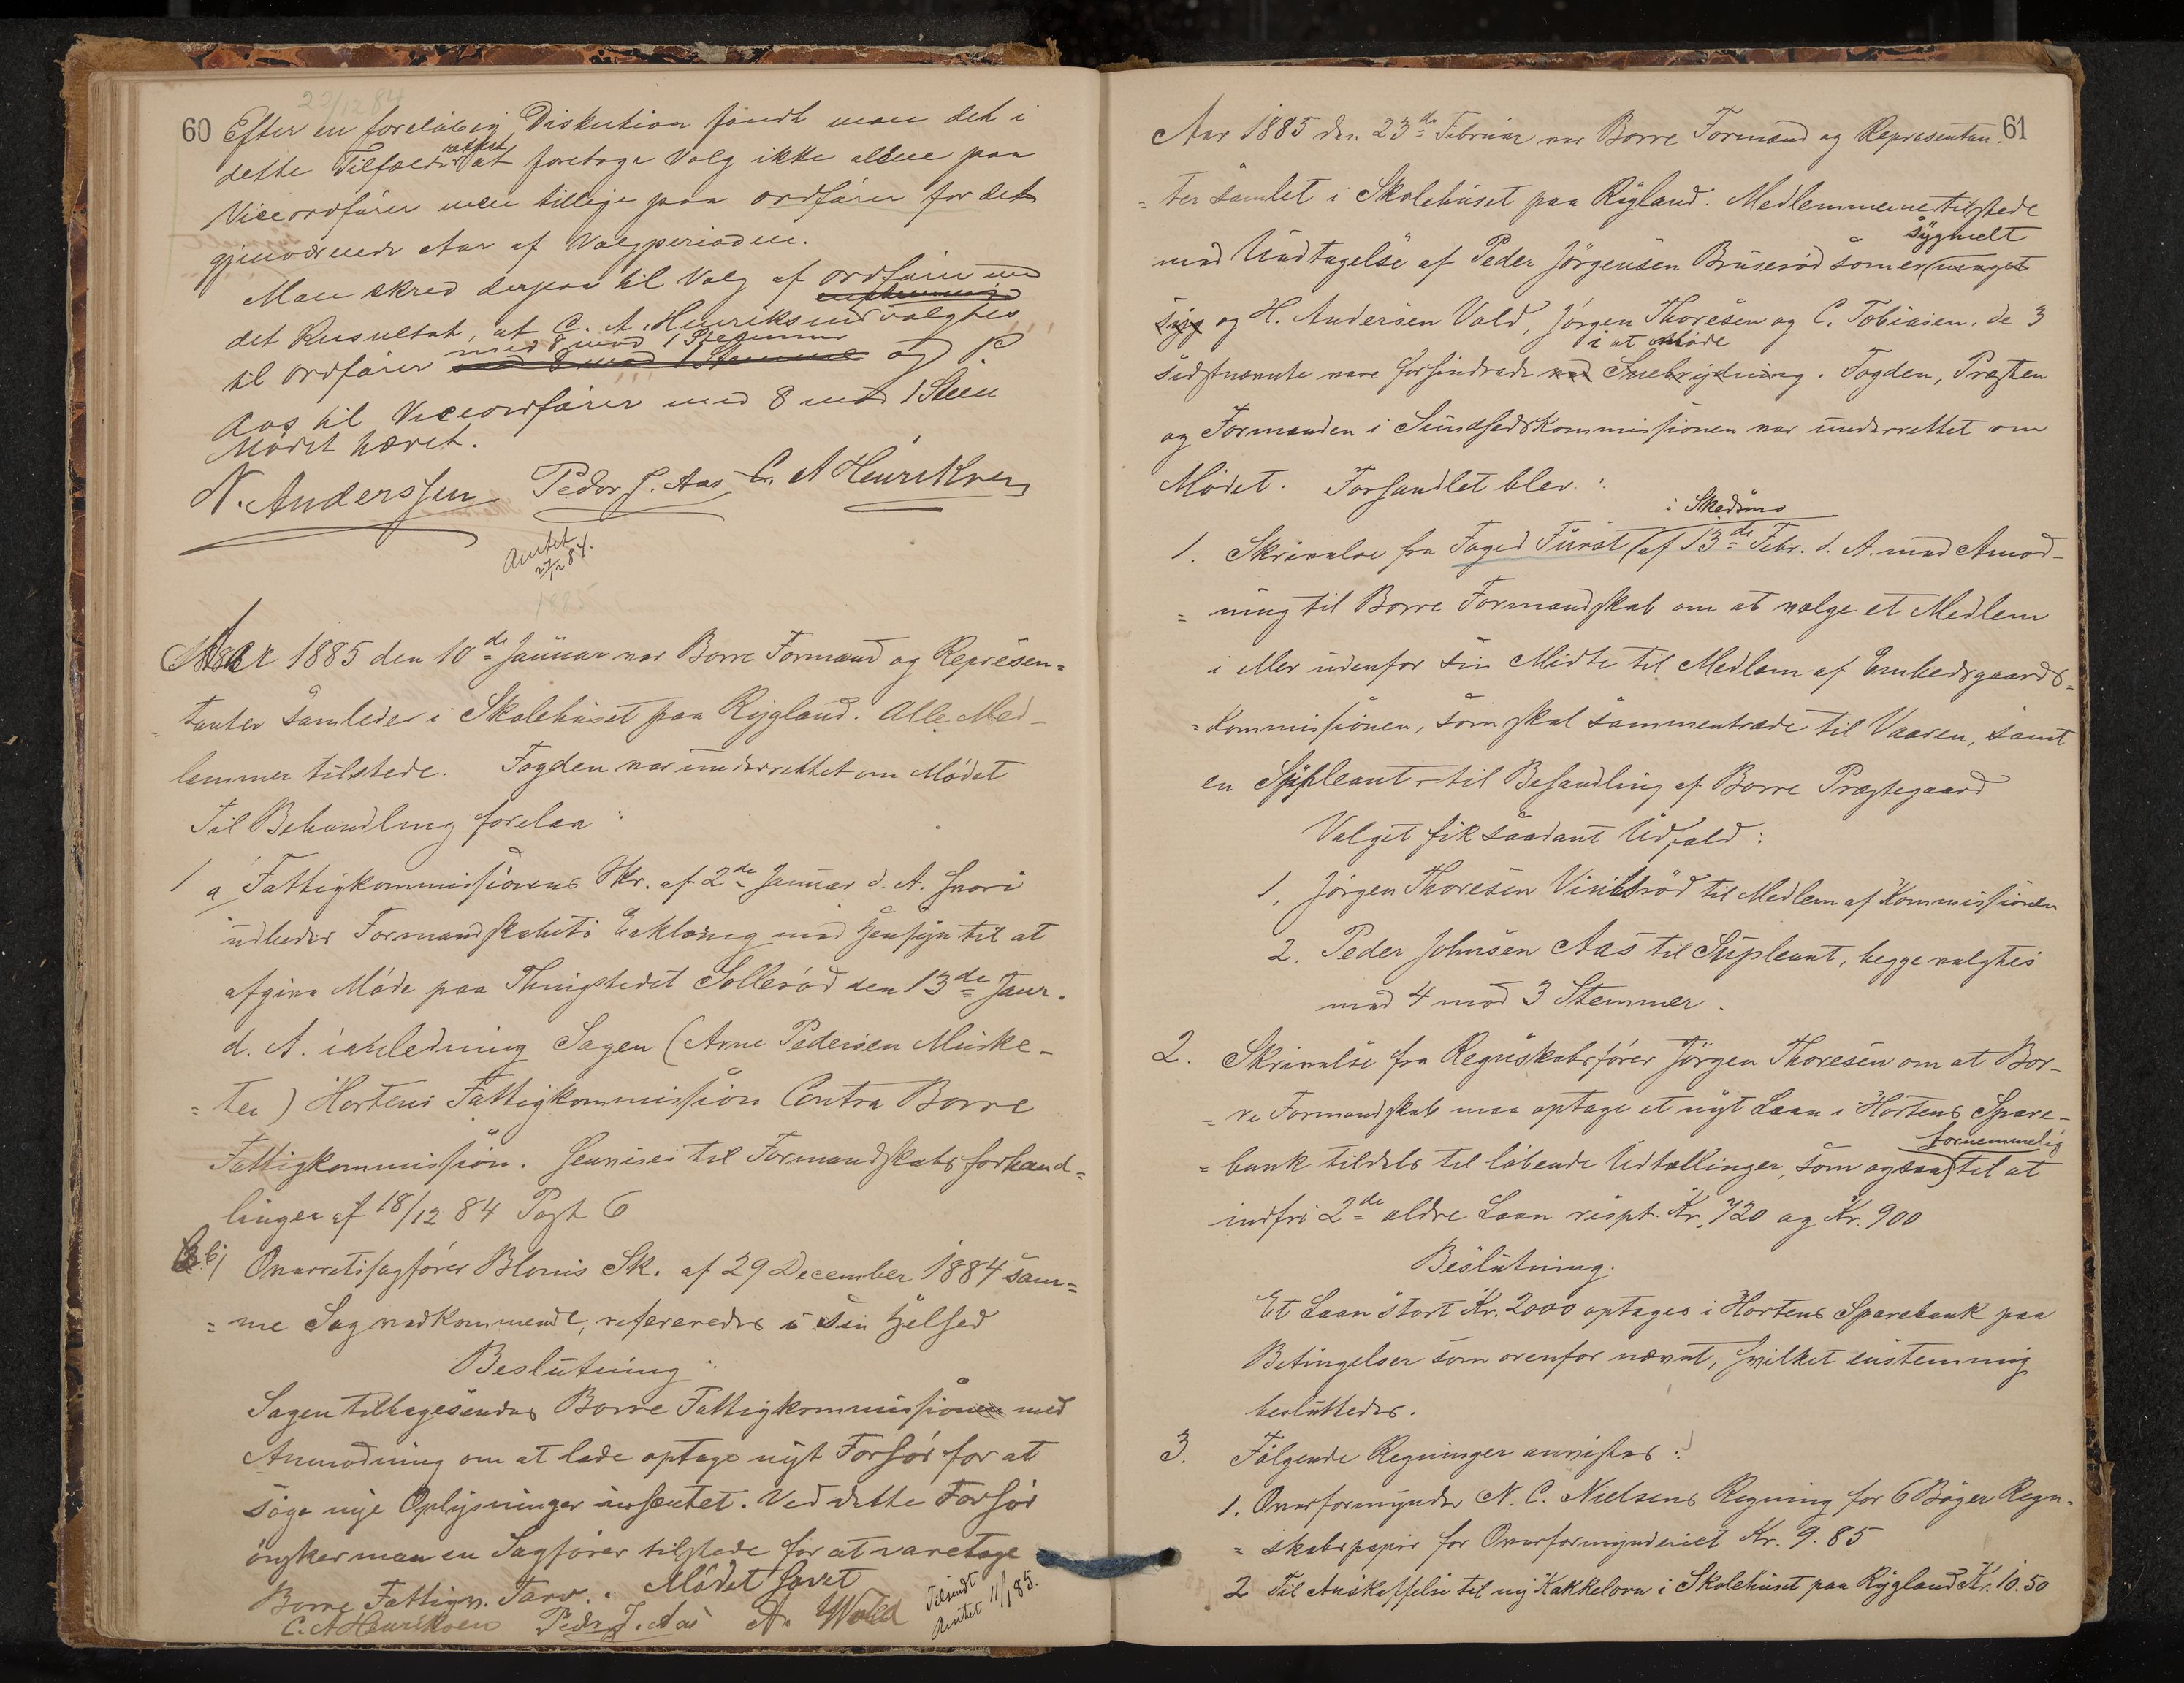 22/12 84
60
Efter en foreløbig Diskution fandt man det i
dette Tilfælde rettest at foretage Valg ikke allene paa
Viceordfører men tillige paa ordfører for det
gjenværende Aar af Valgperioden.
Man skred derpaa til Valg af ordfører med
det Resultat, at C. A. Henriksen valgtes
til ordfører med 8 mod 1 Stemme og P.
Aas til Viceordfører med 8 mod 1 Stem
Mødet hævet.
N. Anderssen Peder J. Aas C. A Henriksen
Amtet
27/12 84.
1885
Aar 1885 den 10de Januar var Borre Formænd og Represen=
=tanter samledes i Skolehuset paa Rygland. Alle Med-
lemmer tilstede. Fogden var underrettet om Mødet
Til Behandling forelaa:
1 a Fattigkommissionens Skr. af 2de Januar d. A. hvori
udbedes Formandskabets Erklæring med Hensyn til at
afgive Møde paa Thingstedet Sollerød den 13de Janr.
d. A. i anledning Sagen (Arne Pedersen Muske-
=ter) Hortens Fattigkommission Contra Borre
Fattigkommission. Henvises til Formandskabsforhand=
linger af 18/12 84 Post 6
b) Overretssagfører Bloms Sk. af 29 December 1884 sam=
=me Sag vedkommende, refereredes i sin Helhed
Beslutning:
Sagen tilbagesendes Borre Fattigkommission med
Anmodning om at lade optage nyt Forhør for at
søge nye Oplysninger indhentet. Ved dette Forhør
ønsker man en Sagfører tilstede for at varetage
Borre Fattigv. Tarv. Mødet hævet
C. A Henriksen Peder J. Aas A. Wold
Tilsendt
Amtet 11/1 85.
61
Aar 1885 den 23de Februar var Borre Formænd og Representan-
=ter samlet i Skolehuset paa Rygland. Medlemmerne tilstede
sygmelt
med Undtagelse af Peder Jørgensen Bruserød som er meget
syg og H. Andersen Vold, Jørgen Thoresen og C. Tobiasen. de 3
i at møde
sidstnævnte vare forhindrede ved Snebrydning. Fogden, Præsten
og Formanden i Sundhedskommissionen var underrettet om
Mødet. Forhandlet blev:
i Skedsmo
1. Skrivelse fra Foged Fürst af 13de Febr. d. A. med Anmod-
=ning til Borre Formandskab om at vælge et Medlem
i eller udenfor sin Midte til Medlem af Embedsgaards=
=Kommissionen, som skal sammentræde til Vaaren, samt
en Supleant – til Behandling af Borre Præstegaard
Valget fik saadant Udfald:
1, Jørgen Thoresen Vinilsrød til Medlem af Kommissionen
2. Peder Johnsen Aas til Supleant, begge valgtes
med 4 mod 3 Stemmer.
2. Skrivelse fra Regnskabsfører Jørgen Thoresen om at Bor-
=re Formandskab maa optage et nyt Laan i Hortens Spare-
fornemmelig
=bank tildels til løbende Udtællinger, som ogsaa til at
indfri 2de ældre Laan respt. Kr. 720 og Kr. 900
Beslutning.
Et Laan stort Kr. 2000 optages i Hortens Sparebank paa
Betingelser som ovenfor nævnt, hvilket enstemmig
besluttedes.
3. Følgende Regninger anvistes:
1. Overformynder N. C. Nielsens Regning for 6 Bøger Regn-
=skabspapir for Overformynderiet Kr. 9.85
2 Til Anskaffelse til ny Kakkelovn i Skolehuset paa Rygland Kr. 10.50